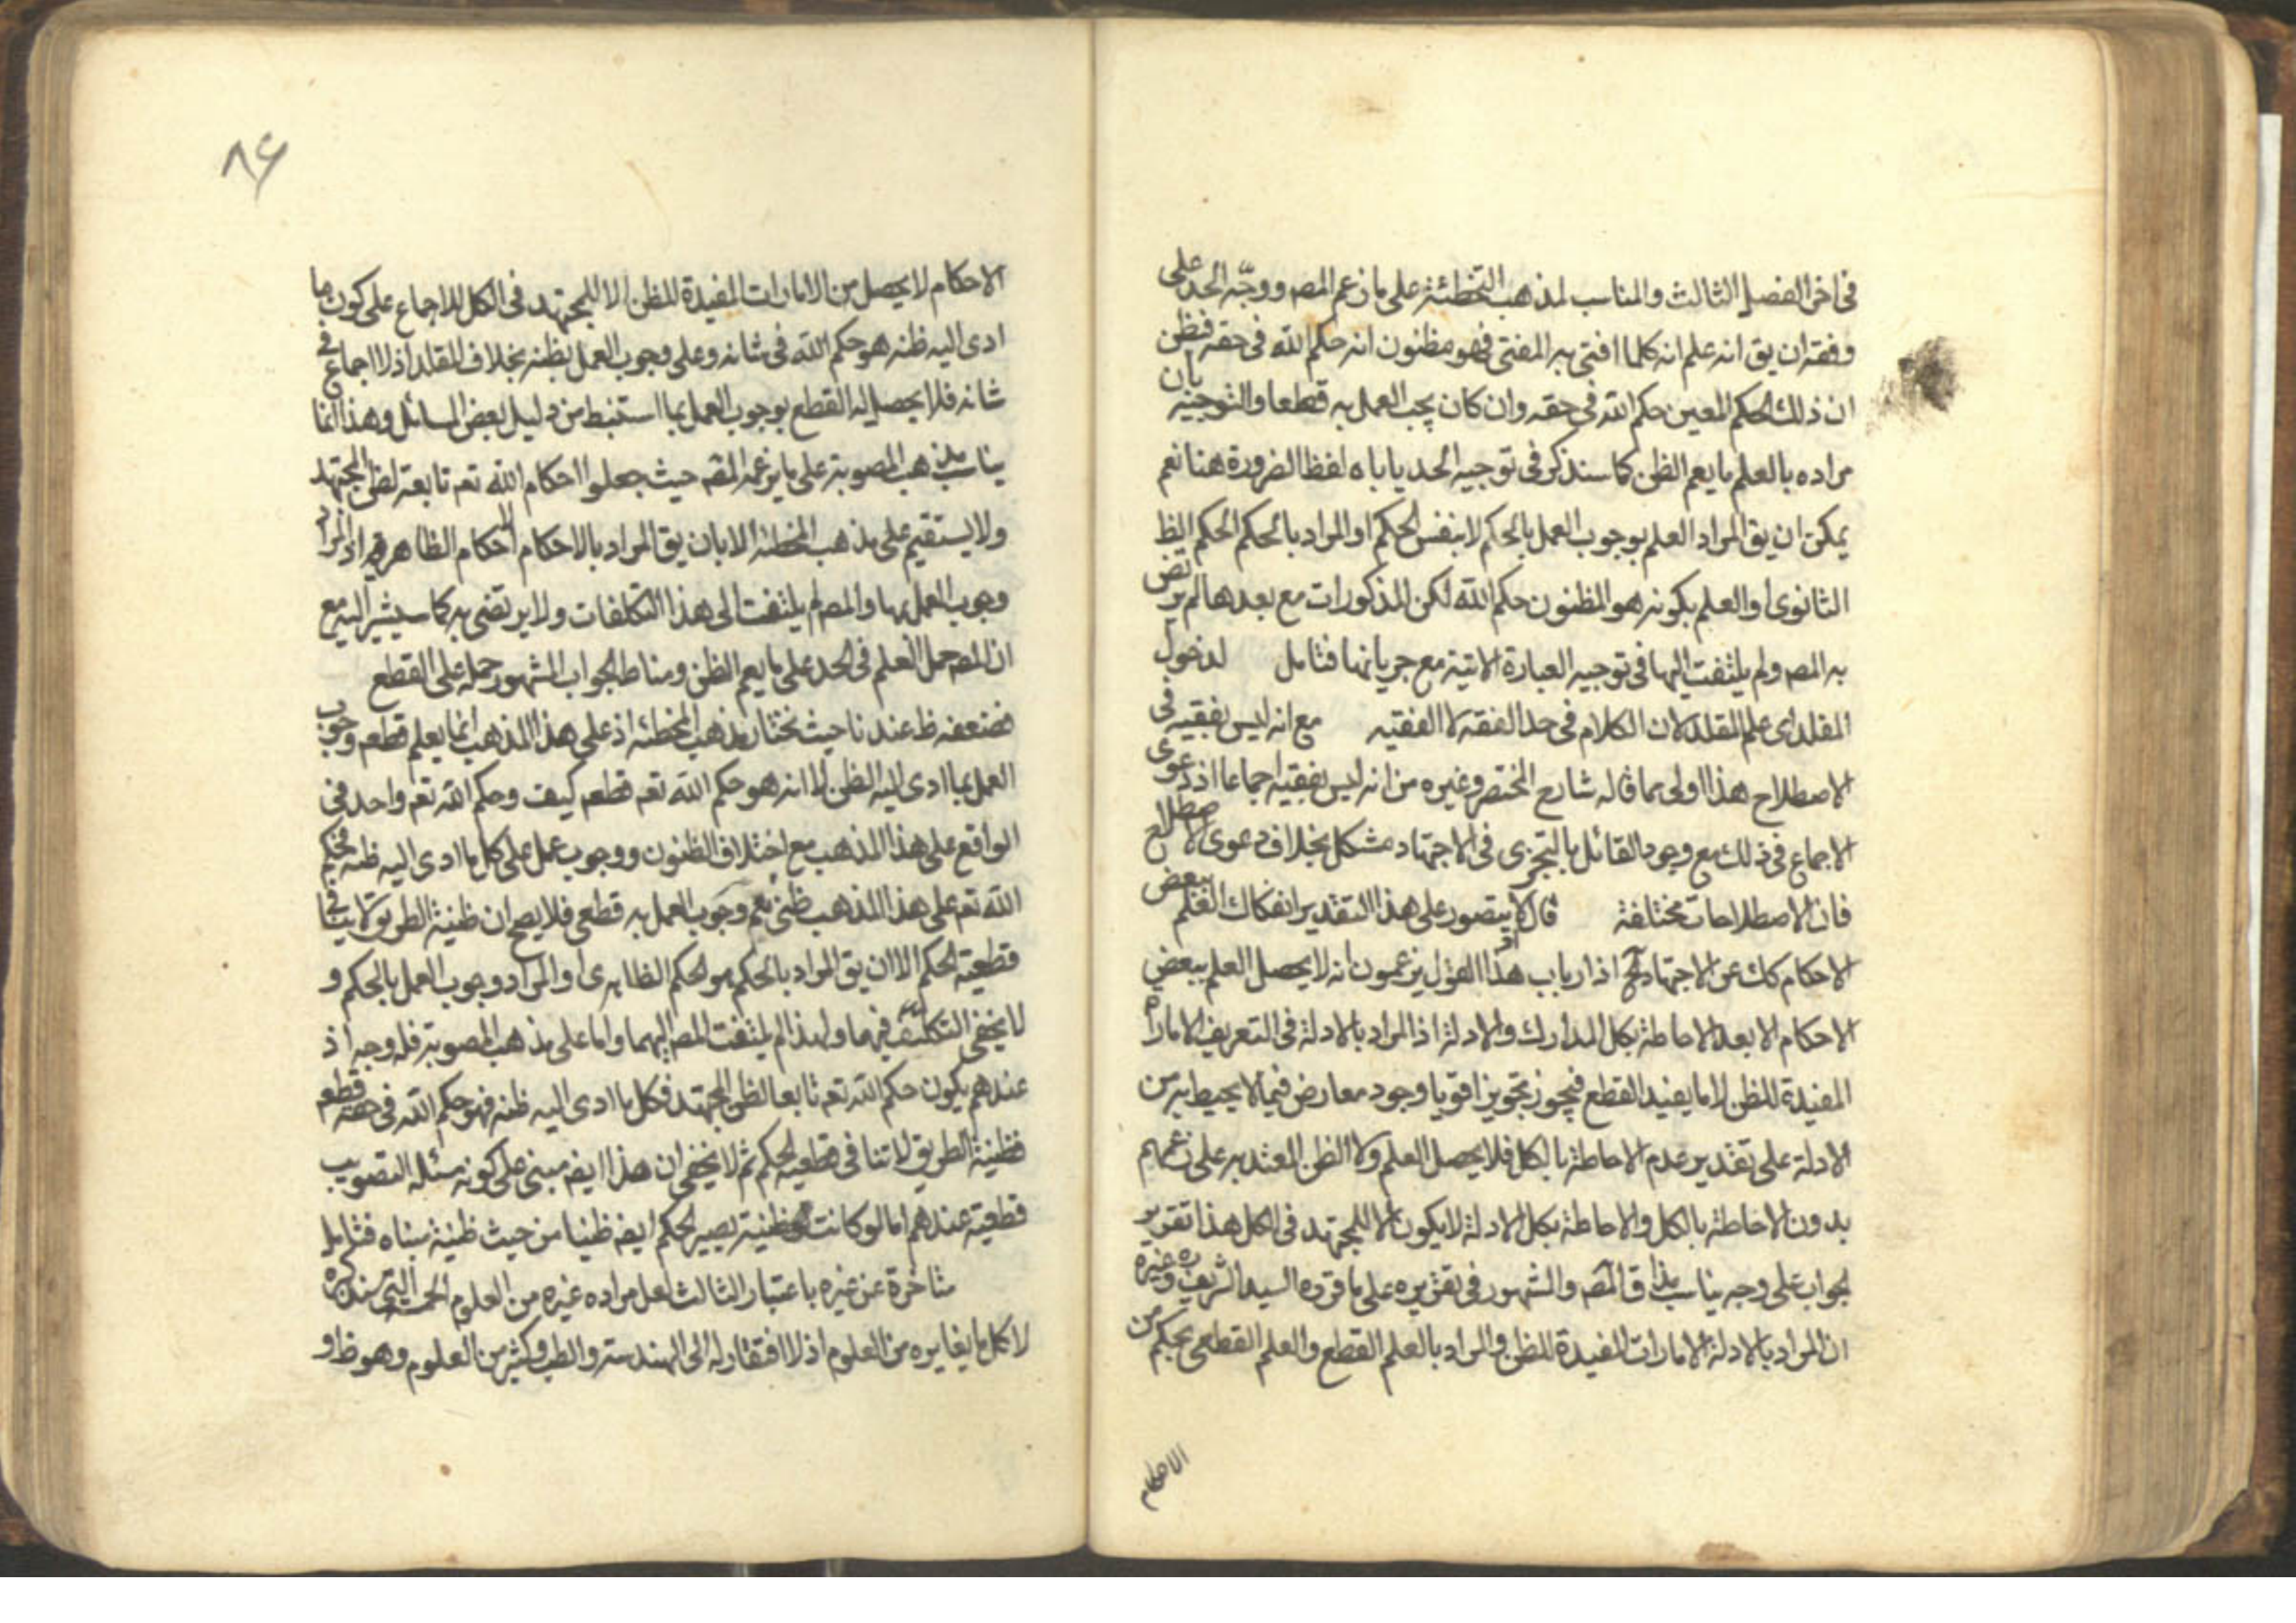 فى اخر الفصل الثالث والمناسب لمذهب التخطئة على ما زعم المصر ووجّه الحد على
وفقه ان يق انه علم انه كلما افتى به المفتى فهو مظنون انه حكم الله فى حقه فظن
ان ذلك الحكم المعين حكم الله فى حقه وان كان يجب العمل به قطعا والتوجيه بان
مراده بالعلم ما يعم الظن كما سنذكر فى توجيه الحد ياباه لفظ الضرورة هنا نعم
يمكن ان يق المراد العلم بوجوب العمل بالحكم لا بنفس الحكم او المراد بالحكم الحكم الظ
الثانوى او العلم بكونه هو المظنون حكم الله لكن المذكورات مع بعدها لم يرتض
به المصر ولم يلتفت اليها فى توجيه العبارة الاتية مع جريانها فتامل لدخول
المقلد اى علم المقلد لان الكلام فى حد الفقه لا الفقيه مع انه ليس بفقيه فى
الاصطلاح هذا اولى مما قاله شارح المختصر وغيره من انه ليس بفقيه اجماعا اذ دعوى
الاجماع فى ذلك مع وجود القائل بالتجزى فى الاجتهاد مشكل بخلاف دعوى الاصطلاح
فان الاصطلاحات مختلفة قال لا يتصور على هذا التقدير انفكاك العلم ببعض
الاحكام كك عن الاجتهاد اذ ارباب هذا القول يزعمون انه لا يحصل العلم ببعض
الاحكام الا بعد الاحاطة بكل المدارك والادلة اذ المراد بالادلة فى التعريف الامارة
المفيدة للظن لا ما يفيد القطع فيجوز تجويزا قويا وجود معارض فيما لا يحيط به من
الادلة على تقدير عدم الاحاطة بالكل فلا يحصل العلم ولا الظن المعتد به على زعمهم
بدون الاحاطة بالكل والاحاطة بكل الادلة لا يكون الا للمجتهد فى الكل هذا تقرير
لجواب على وجه يناسب مذاق المصر والمشهور فى تقريره على ما قرره السيد الشريف ره وغيره
ان المراد بالادلة الامارات المفيدة للظن والمراد بالعلم القطع والعلم القطعى بحكم من
الاحكام
٨٦
الاحكام لا يحصل من الامارات المفيدة للظن الا للمجتهد فى الكل للاجماع على كون ما
ادى اليه ظنه هو حكم الله فى شانه وعلى وجوب العمل بظنه بخلاف المقلد اذ لا اجماع فى
شانه فلا يحصل له القطع بوجوب العمل بما استنبط من دليل بعض المسائل وهذا انما
يناسب مذهب المصوبة على ما يزعمه المصر حيث جعلوا احكام الله تعم تابعة لظن المجتهد
ولا يستقيم على مذهب المخطئة الا بان يق المراد بالاحكام الاحكام الظاهرية او المراد
وجوب العمل بها والمصر لم يلتفت الى هذا التكلفات ولا يرتضى به كما سيشير اليه مع
ان المصر حمل العلم فى الحد على ما يعم الظن ومناط الجواب المشهور حمله على القطع
فضعفه ظ عندنا حيث نختار مذهب المخطئة اذ على هذا المذهب انما يعلم قطعم وجوب
العمل بما ادى اليه الظن لا انه هو حكم الله تعم قطعم كيف وحكم الله تعم واحد فى
الواقع على هذا المذهب مع اختلاف الظنون ووجوب عمل على كل ما ادى اليه ظنه فحكم
الله تعم على هذا المذهب ظنى نعم وجوب العمل به قطعى فلا يصح ان ظنية الطريق لا ينافى
قطعية الحكم الا ان يق المراد بالحكم هو الحكم الظاهرى او المراد وجوب العمل بالحكم و
لا يخفى التكلف فيهما ولهذا لم يلتفت المصر اليهما واما على مذهب المصوبة فله وجه اذ
عندهم يكون حكم الله تعم تابعا لظن المجتهد فكل ما ادى اليه ظنه فهو حكم الله فى حقه قطعم
فظنية الطريق لا تنافى قطعية الحكم ثم لا يخفى ان هذا ايضر مبنى على كون مسئلة التصويب
قطعية عندهم اما لو كانت ظنية يصير الحكم ايضر ظنيا من حيث ظنية مبناه فتامل
متاخرة عن غيره باعتبار الثالث لعل مراده غيره من العلوم التى سنذكره
لا كل ما يغايره من العلوم اذ لا افتقار له الى الهندسة والطب وكثير من العلوم وهو ظ او